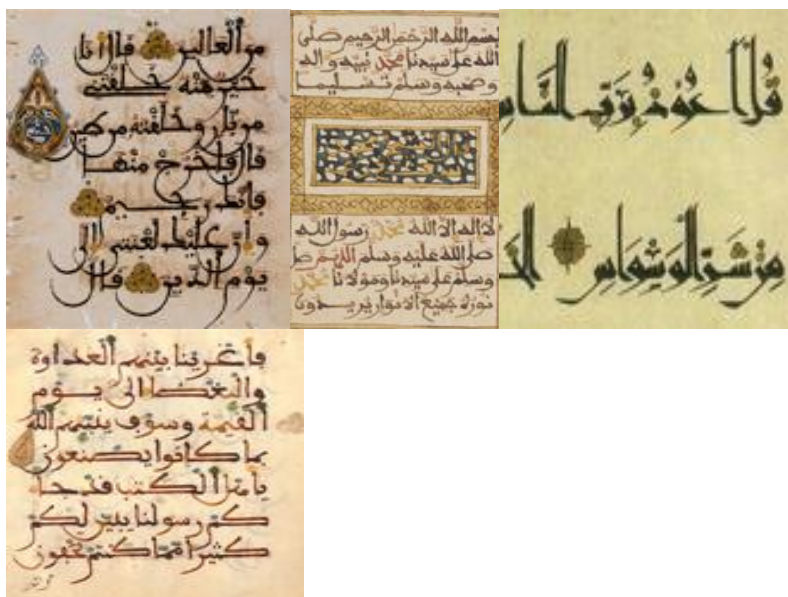 من العالين قال انا
خير منه خلقتني
من نار وخلقته من طين
قال فاخرج منها
فانك رجيم
وان عليك لعنتي الى
يوم الدين قال
بسم الله الرحمن الرحيم صلى
الله على سيدنا محمد نبيه واله
وصحبه وسلم تسليما
لا اله الا الله محمد رسول الله
صلى الله عليه وسلم اللهم صل
وسلم على سيدنا ومولانا محمد
نوره جميع الانوار
قل اعوذ برب الناس
من شر الوسواس الخـ
فاغرينا بينهم العداوة
والبغضا الى يوم
القيمة وسوف ينبئهم الله
بما كانوا يصنعون
ياهل الكتب قد جا
كم رسولنا يبين لكم
كثيرا مما كنتم تخفون